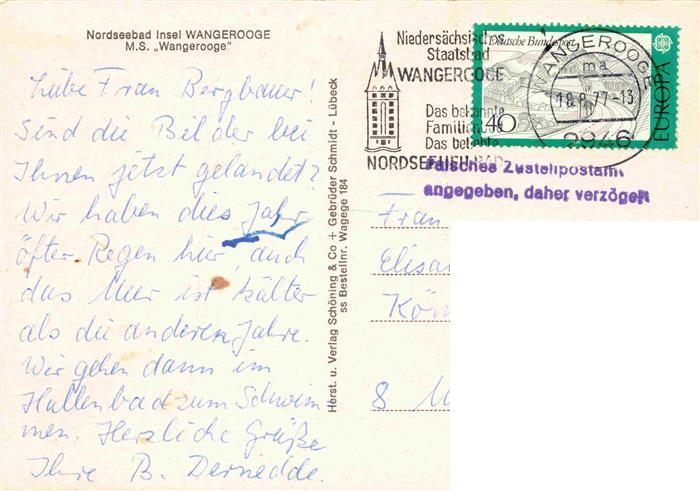 Nordseebad Insel WANGEROOGE
M.S. „Wangerooge“
Liebe Frau Bergbauer!
Sind die Bilder bei
Ihnen jetzt gelandet?
Wir haben dies Jahr
öfter Regen hier, auch
das Meer ist kälter
als die anderen Jahre.
Wir gehen dann im
Hallenbad zum Schwim-
men. Herzliche Grüße
Ihre B. Dernedde.
Herst. u. Verlag Schöning & Co + Gebrüder Schmidt - Lübeck
ss Bestellnr. Wagege 184
Niedersächsisches
Staatsbad
WANGEROOGE
Das bekannte
Familien
Das beliebte
NORDSEEHEILBAD
Deutsche Bundespost
40
EUROPA
WANGEROOGE
ma
18.8.77-13
2946
Falsches Zustellpostamt
angegeben, daher verzögert
Frau
Elisa
Kön
8 M